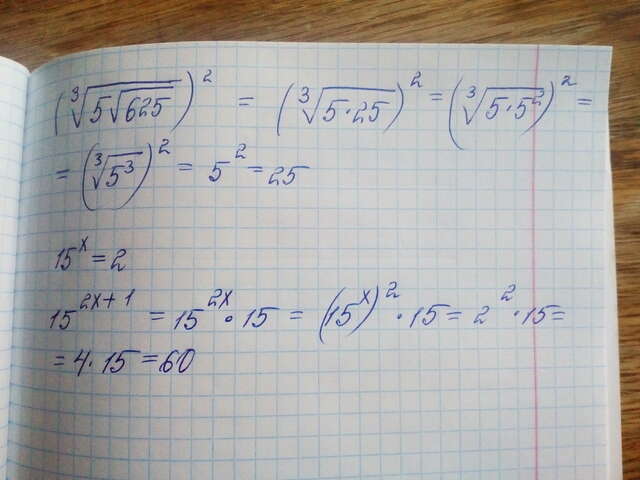 (∛(5√625))² = (∛(5·25))² = (∛(5·5²))² =
= (∛(5³))² = 5² = 25
15ˣ = 2
15²ˣ⁺¹ = 15²ˣ · 15 = (15ˣ)² · 15 = 2² · 15 =
= 4 · 15 = 60